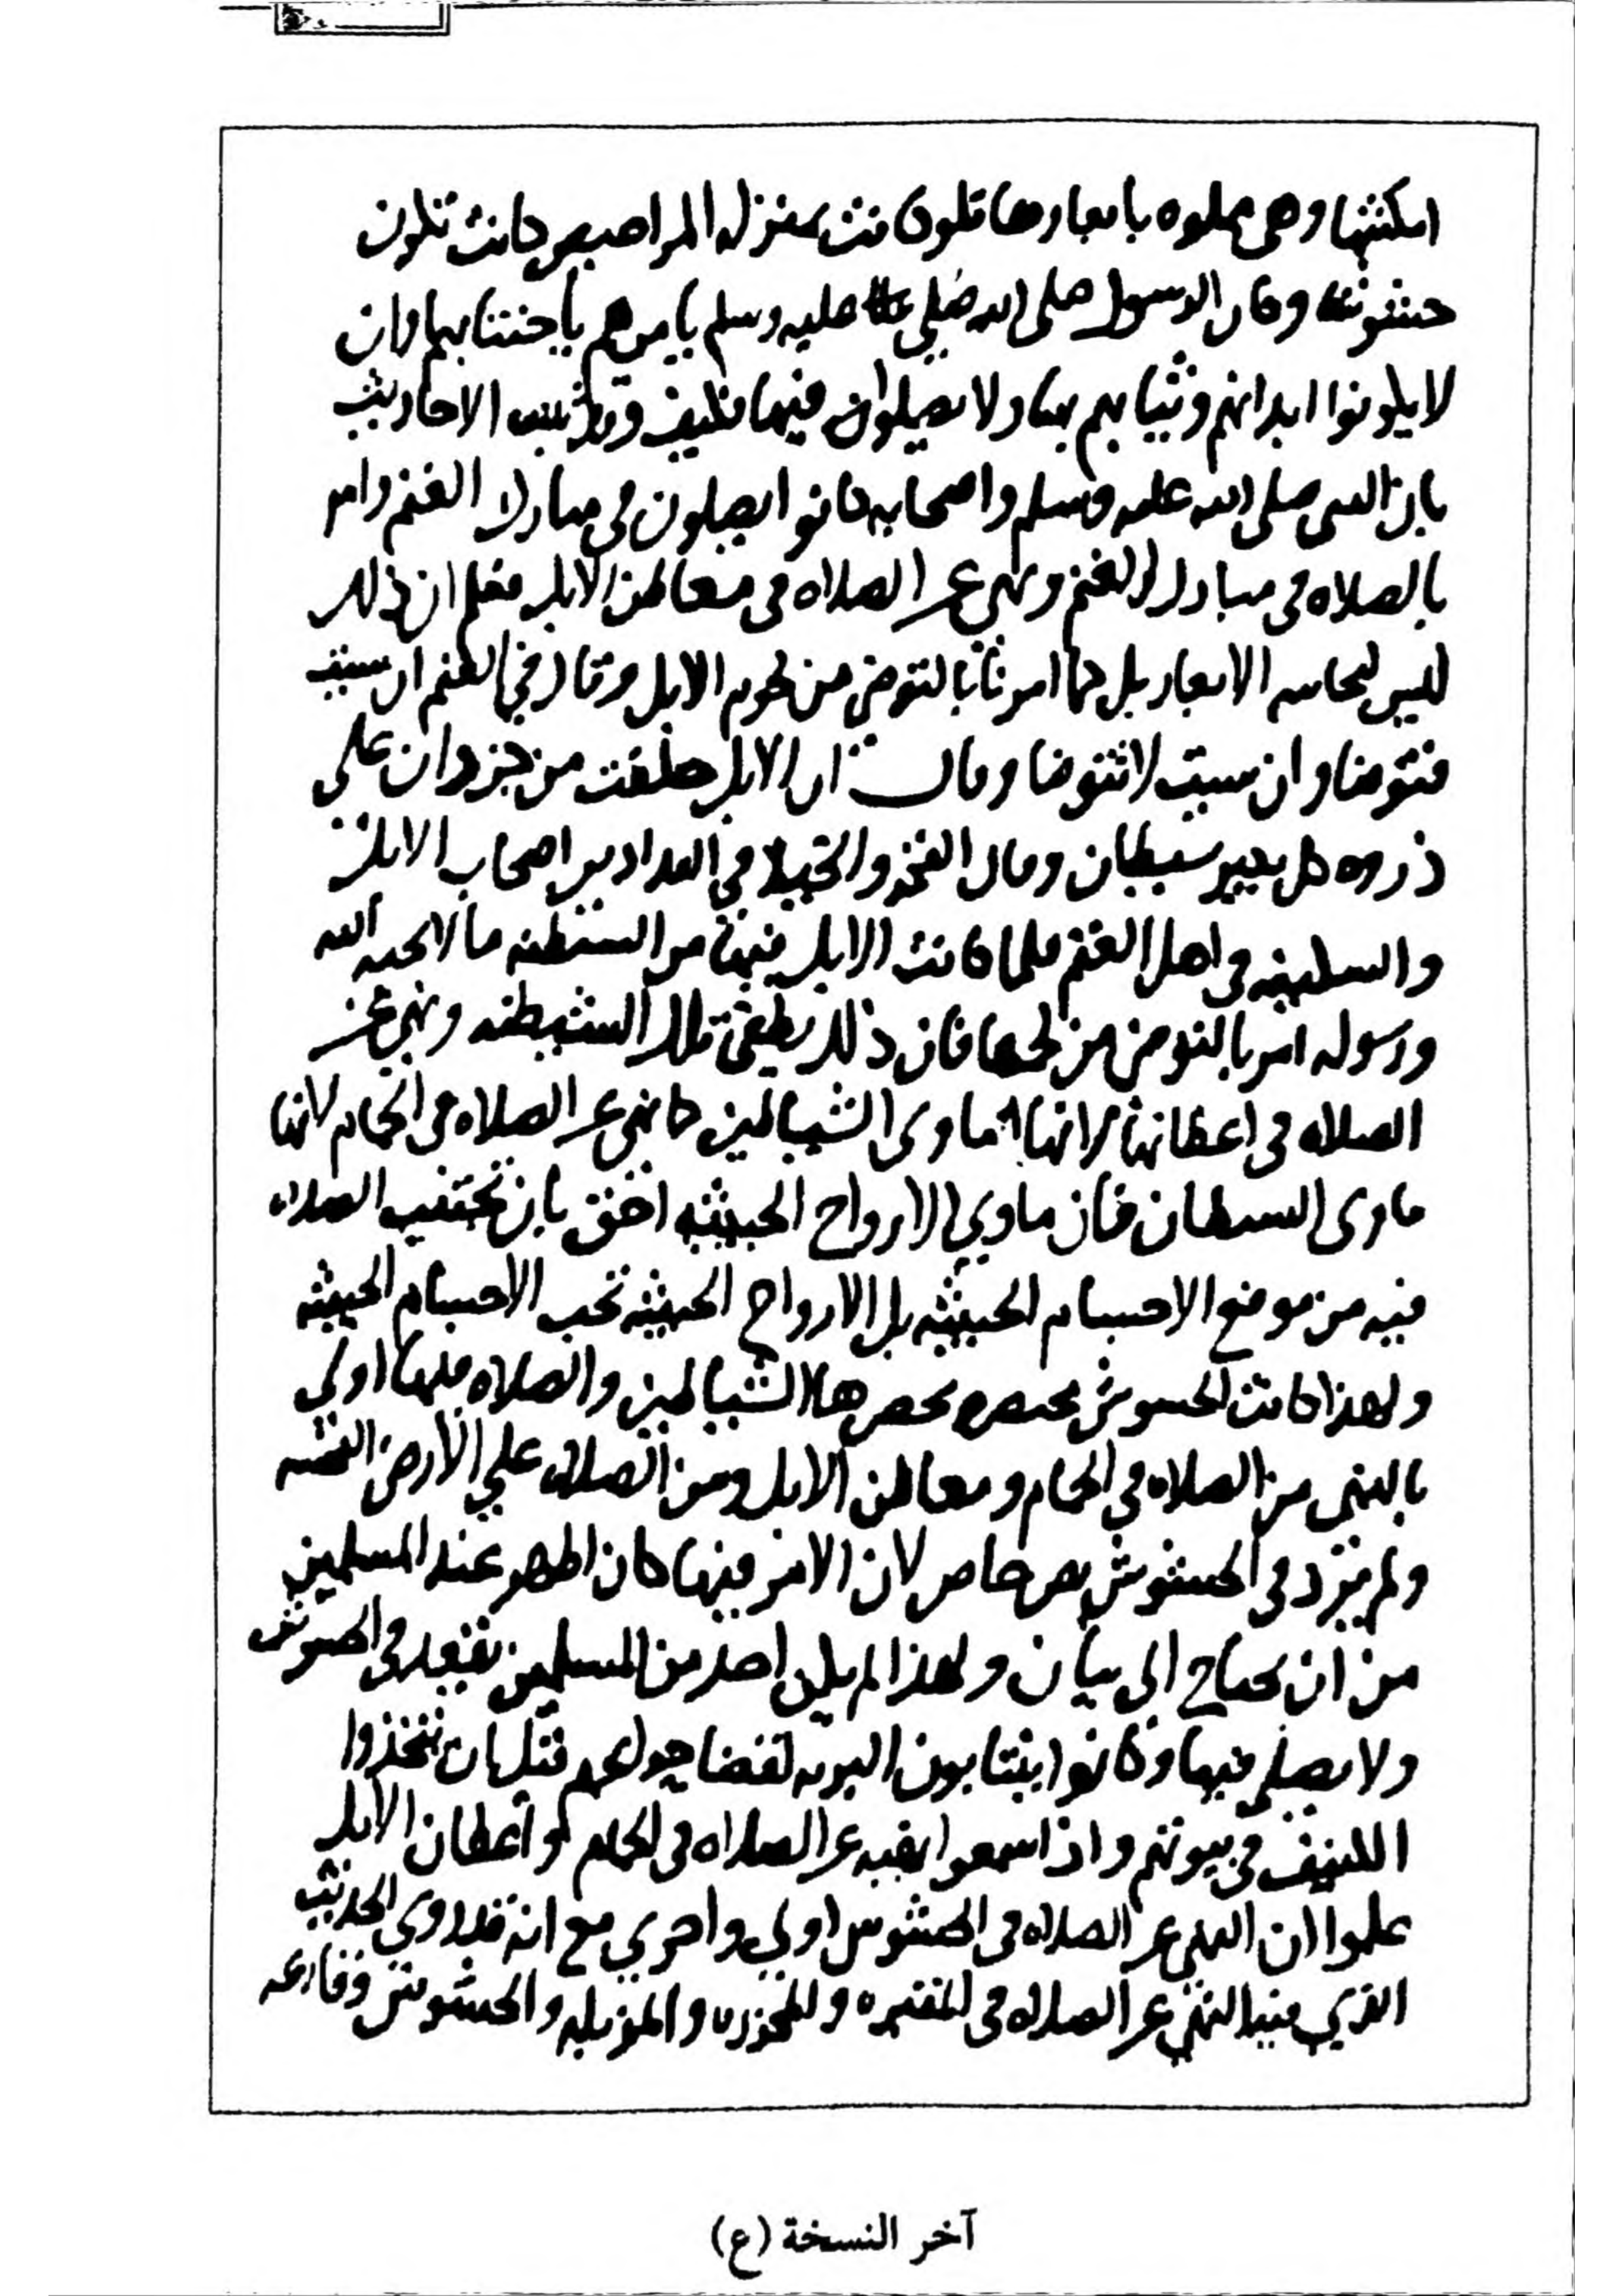 امكنتها وهي مملوه بابعارها فلو كانت بمنزله المراحيض كانت تكون
حشوشا وكان الرسول صلى الله عليه وسلم يامرهم باجتنابها وان
لا يلوثوا ابدانهم وثيابهم بها ولا يصلون فيها فكيف وقد ثبت الاحاديث
بان النبى صلى الله عليه وسلم واصحابه كانوا يصلون فى مبارك الغنم وامر
بالصلاه فى مبارك الغنم ونهى عن الصلاه فى معاطن الابل فعلم ان ذلك
ليس لنجاسه الابعار بل كما امرنا بالتوضى من لحوم الابل وقال في الغنم ان شيت
فتوضا وان شيت لا تتوضا وقال ان الابل خلقت من جن وان على
ذروه كل بعير شيطان وقال الفخر والخيلا فى الفدادين اصحاب الابل
والسكينه فى اهل الغنم فلما كانت الابل فيها من الشيطنه ما لا يحبه الله
ورسوله امر بالتوضى من لحمها فان ذلك يطفى تلك الشيطنه ونهى عن
الصلاه فى اعطانها لانها ماوى الشياطين كما نهى عن الصلاه فى الحمام لانها
ماوى الشيطان فان ماوي الارواح الخبيثه احق بان تجتنب الصلاه
فيه من موضع الاجسام الخبيثه بل الارواح الخبيثه تحب الاجسام الخبيثه
ولهذا كانت الحشوش محتضره تحضرها الشياطين والصلاه فيها اولى
بالنهى من الصلاه فى الحمام ومعاطن الابل ومن الصلاه علي الارض النجسه
ولم يرد فى الحشوش نص خاص لان الامر فيها كان اظهر عند المسلمين
من ان يحتاج الى بيان ولهذا لم يكن احد من المسلمين يقعد فى الحشوش
ولا يصلي فيها وكانوا ينتابون البريه لقضا حوايجهم قبل ان تتخذوا
الكنيف فى بيوتهم واذا سمعوا نهيه عن الصلاه فى الحمام او اعطان الابل
علموا ان النهى عن الصلاه فى الحشوش اولي واحري مع انه قد روي الحديث
الذي فيه النهى عن الصلاه فى المقبره والمجزره والمزبله والحشوش وقارعه
آخر النسخة (ع)